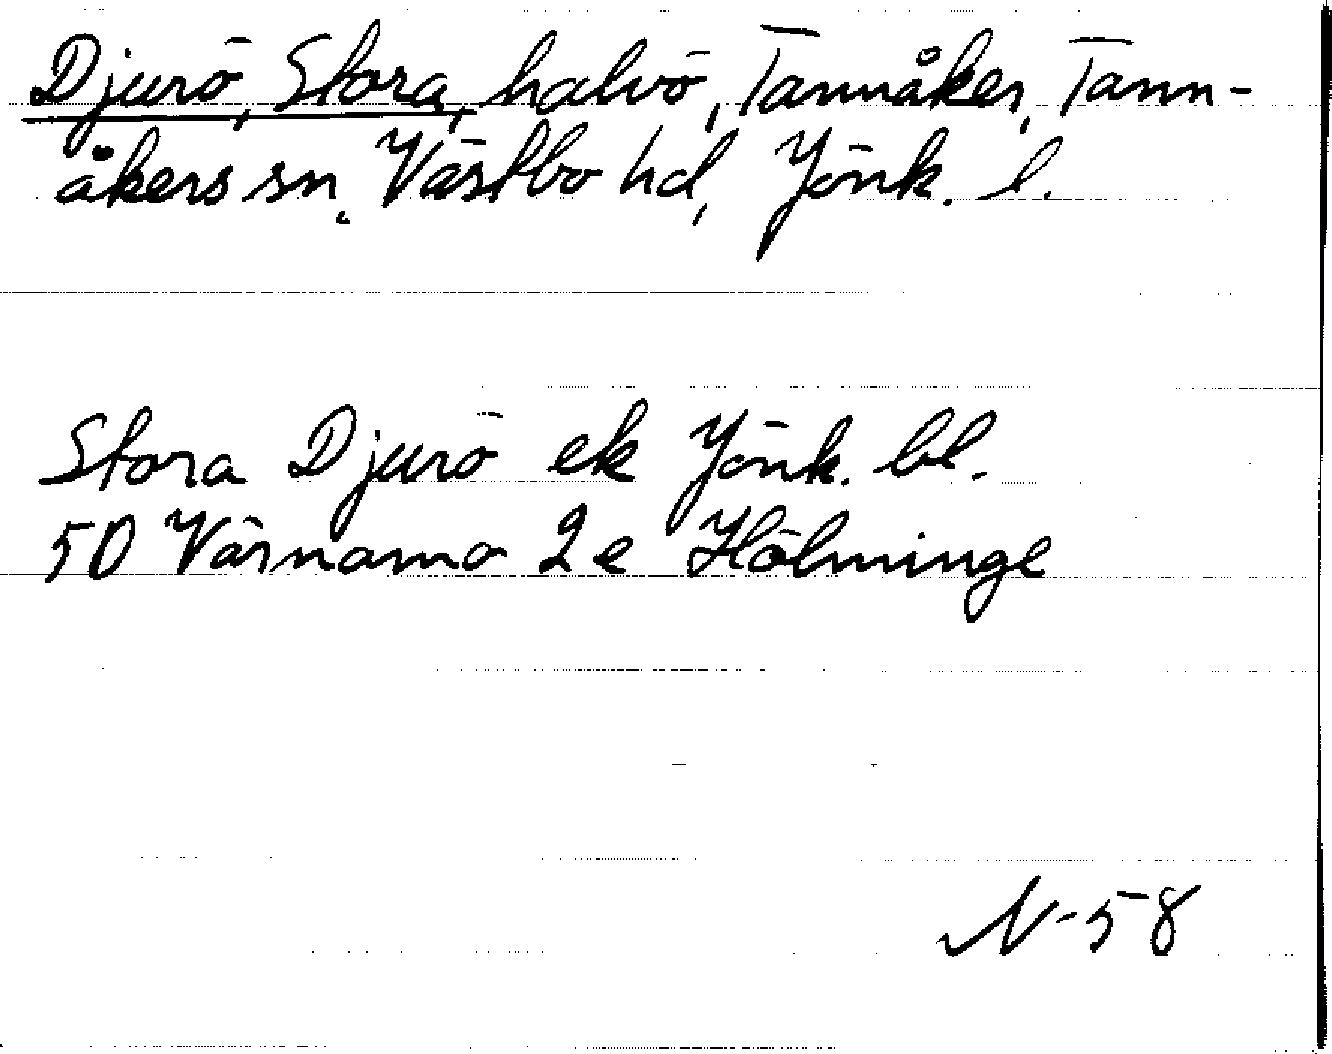 Djurö, Stora, halvö, Tannåker, Tann-
åkers sn, Västbo hd, Jönk. l.
Stora Djurö ek Jönk. bl.
50 Värnamo 2e Hölminge
N-58